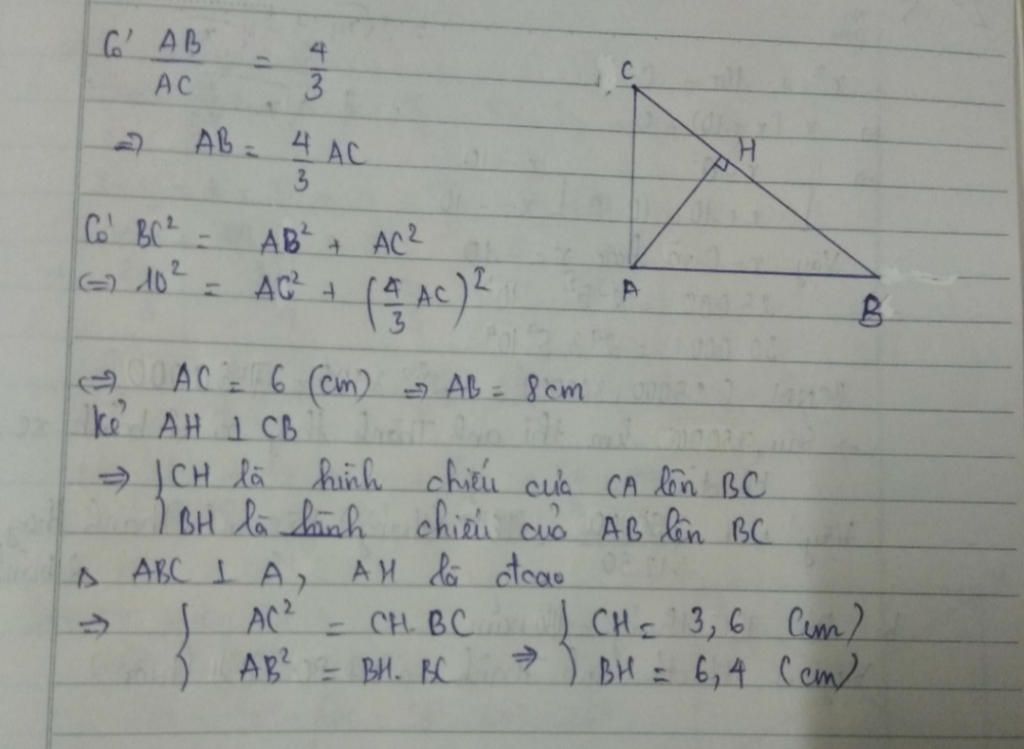 Có AB/AC = 4/3
=> AB = 4/3 AC
Có BC² = AB² + AC²
<=> 10² = AC² + (4/3 AC)²
<=> AC = 6 (cm) => AB = 8cm
Kẻ AH ⊥ CB
=> { CH là hình chiếu của CA lên BC
{ BH là hình chiếu của AB lên BC
Δ ABC ⊥ A, AH là đcao
=> { AC² = CH. BC => { CH = 3,6 (cm)
{ AB² = BH. BC { BH = 6,4 (cm)
C
H
A
B